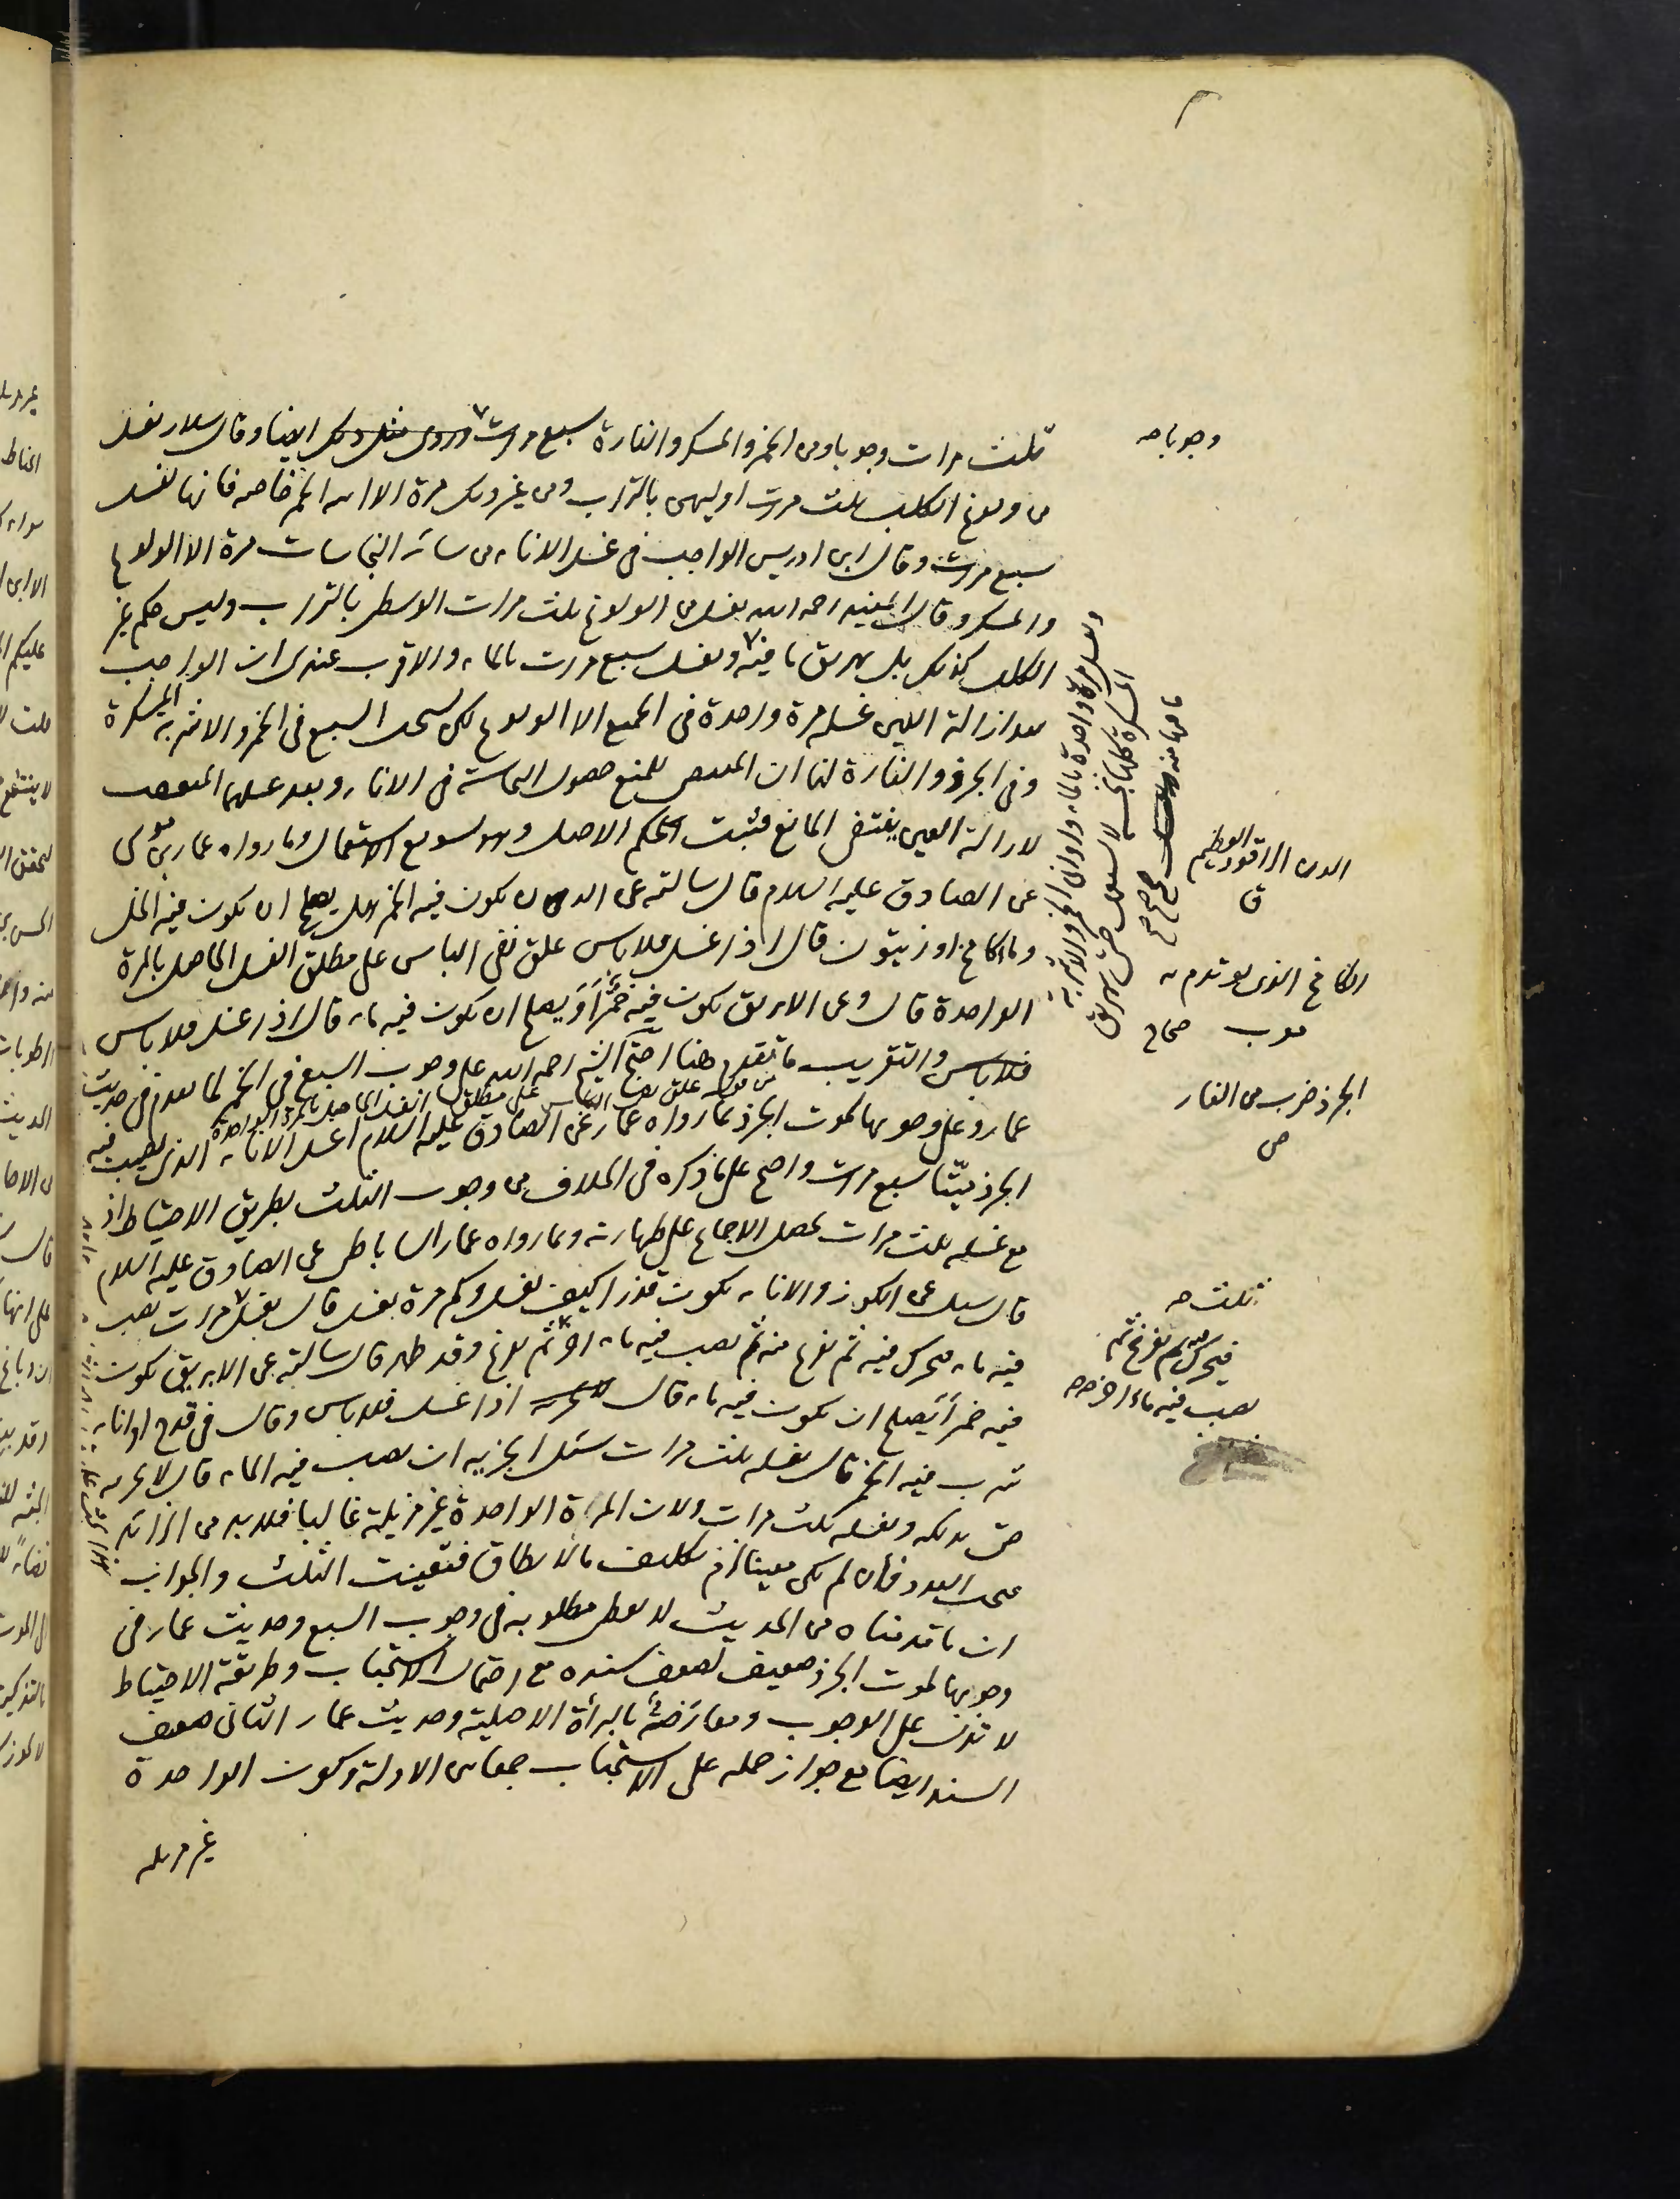 ثلث مرات وجوبا ومن الخمر والمسكر والفارة سبع مرات وروى مثل ذلك ايضا وقال سلار يغسل
من ولوغ الكلب ثلث مرات اوليهن بالتراب ومن غير ذلك مرة الا انية الخمر خاصه فانها تغسل
سبع مرات وقال ابن ادريس الواجب فى غسل الاناء من سائر النجاسات مرة الا الولوغ
والمسكر وقال المفيد رحمه الله يغسل من الولوغ ثلث مرات الوسطى بالتراب وليس حكم غير
الكلب كذلك بل يهريق ما فيه ويغسل سبع مرات بالماء والاقرب عندى ان الواجب
بعد ازالة العين غسله مرة واحدة فى الجميع الا الولوغ لكن يستحب السبع فى الخمر والاشربة المسكرة
وفى الجرذ والفارة لنا ان المقتضى للمنع حصول النجاسة فى الاناء وبعد غسلها المتعقب
لازالة العين ينتفى المانع فيثبت الحكم الاصلى وهو تسويغ الاستعمال وما رواه عمار بن موسى
عن الصادق عليه السلام قال سالته عن الدن يكون فيه الخمر هل يصلح ان يكون فيه الخل
وماء كامخ او زيتون قال اذا غسل فلا باس علق نفى الباس على مطلق الغسل الحاصل بالمرة
الواحدة قال وعن الابريق يكون فيه خمرا ايصلح ان يكون فيه ماء قال اذا غسل فلا باس
علق نفى الباس على مطلق الغسل الحاصل بالمرة الواحدة
فلا باس والتقريب ما تقدم هنا احتج الشيخ رحمه الله على وجوب السبع فى الخمر لما تقدم فى حديث
عمار وعلى وجوبها لموت الجرذ بما رواه عمار عن الصادق عليه السلام اغسل الاناء الذى تصيب فيه
الجرذ ميتا سبع مرات واحتج على ما ذكره فى الخلاف من وجوب الثلث بطريق الاحتياط اذ
مع غسله ثلث مرات يحصل الاجماع على طهارته وبما رواه عمار الساباطى عن الصادق عليه السلام
قال سئل عن الكوز والاناء يكون قذرا كيف يغسل وكم مرة يغسل قال يغسل مرات يصب
فيه ماء فيحرك فيه ثم يفرغ منه ثم يصب فيه ماء اخر ثم يفرغ وقد طهر قال سالته عن الابريق يكون
فيه خمرا ايصلح ان يكون فيه ماء قال اذا غسل فلا باس وقال فى قدح او اناء
شرب فيه الخمر قال يغسله ثلث مرات سئل ايجزيه ان يصب فيه الماء قال لا يجزيه
حتى يدلكه ويغسله ثلث مرات ولان المرة الواحدة غير مزيلة غالبا فلا بد من الزائد
فيجب العدد فان لم يكن معينا لزم تكليف ما لا يطاق فتعينت الثلث والجواب
ان ما قدمناه من الحديث لا يعطى مطلوبه فى وجوب السبع وحديث عمار فى
وجوبها لموت الجرذ ضعيف لضعف سنده مع احتمال الاستحباب وطريقة الاحتياط
لا تدل على الوجوب ومعارضة بالبرأة الاصلية وحديث عمار الثانى ضعيف
السند ايضا مع جواز حمله على الاستحباب جمعا بين الادلة وكون الواحدة
غير مزيله
وجوبا صح
الدن الراقود العظيم
ق
الكامخ الذى يؤتدم به
معرب صحاح
الجرذ ضرب من الفار
ص
ثلث صح
فيحرك فيه ثم يفرغ ثم
يصب فيه ماء اخر صح